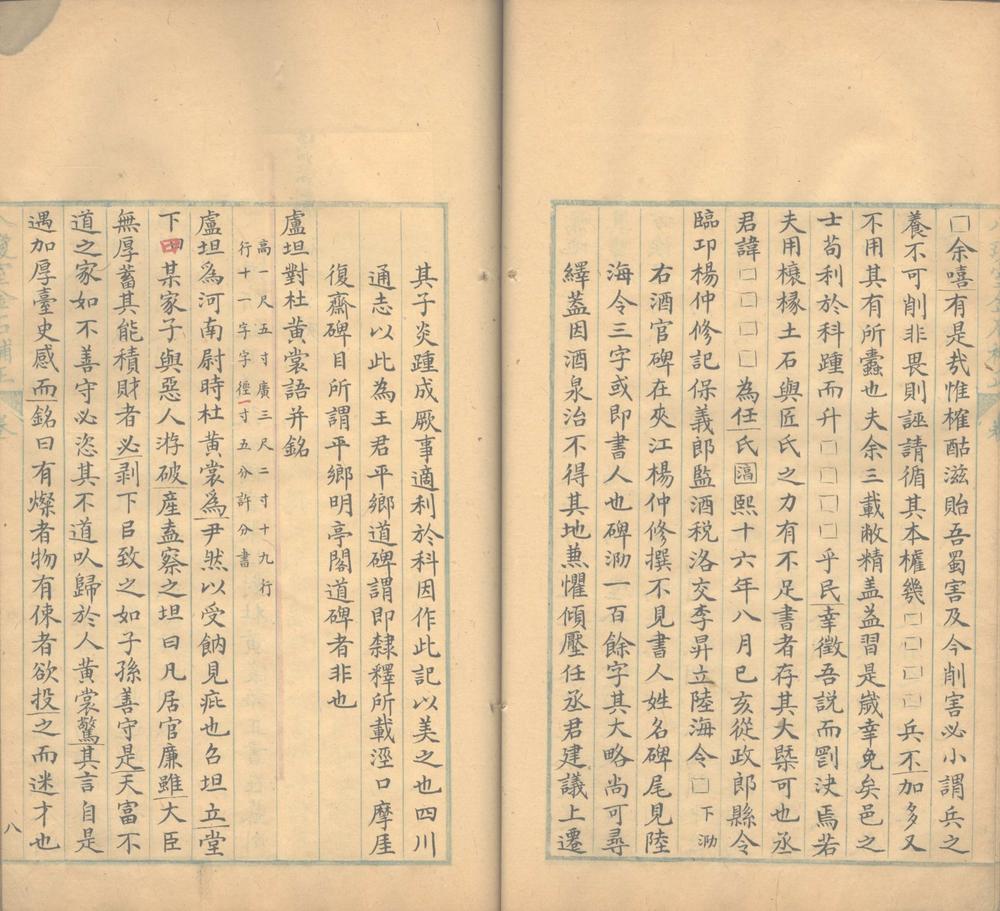 □余嘻有是㢤惟榷酤滋貽吾蜀害及今削害必小謂兵之
養不可削非畏則誣請循其本權幾□□□□兵不加多又
不用其有所蠹也夫余三載敝精盖益習是嵗幸免矣邑之
士苟利於科踵而升□□□□乎民幸徵吾説而罰决焉若
夫用榱椽土石與匠氏之力有不足書者存其大槩可也丞
君諱□□□□為任氏淄熙十六年八月己亥從政郎縣令
臨卭楊仲修記保義郎監酒税洛交李昇立陸海令□下泐
右酒官碑在夾江楊仲修撰不見書人姓名碑尾見陸
海令三字或即書人也碑泐一百餘字其大略尚可尋
繹葢因酒泉治不得其地兼懼傾壓任丞君建議上遷
其子炎踵成厥事適利於科因作此記以美之也四川
通志以此為王君平鄉道碑謂即隸釋所載涇口摩厓
復齋碑目所謂平鄉明亭閣道碑者非也
盧坦對杜黄裳語并銘
高一尺五寸廣三尺二寸十九行
行十一字字徑一寸五分許分書
盧坦爲河南尉時杜黄裳為尹然以受餉見疵也召坦立堂
下曰某家子與惡人游破産盍察之坦曰凡居官廉雖大臣
無厚蓄其能積財者必剥下㠯致之如子孫善守是天富不
道之家如不善守必恣其不道㕥歸於人黄裳驚其言自是
遇加厚臺史感而銘曰有燦者物有倲者欲投之而迷才也
八